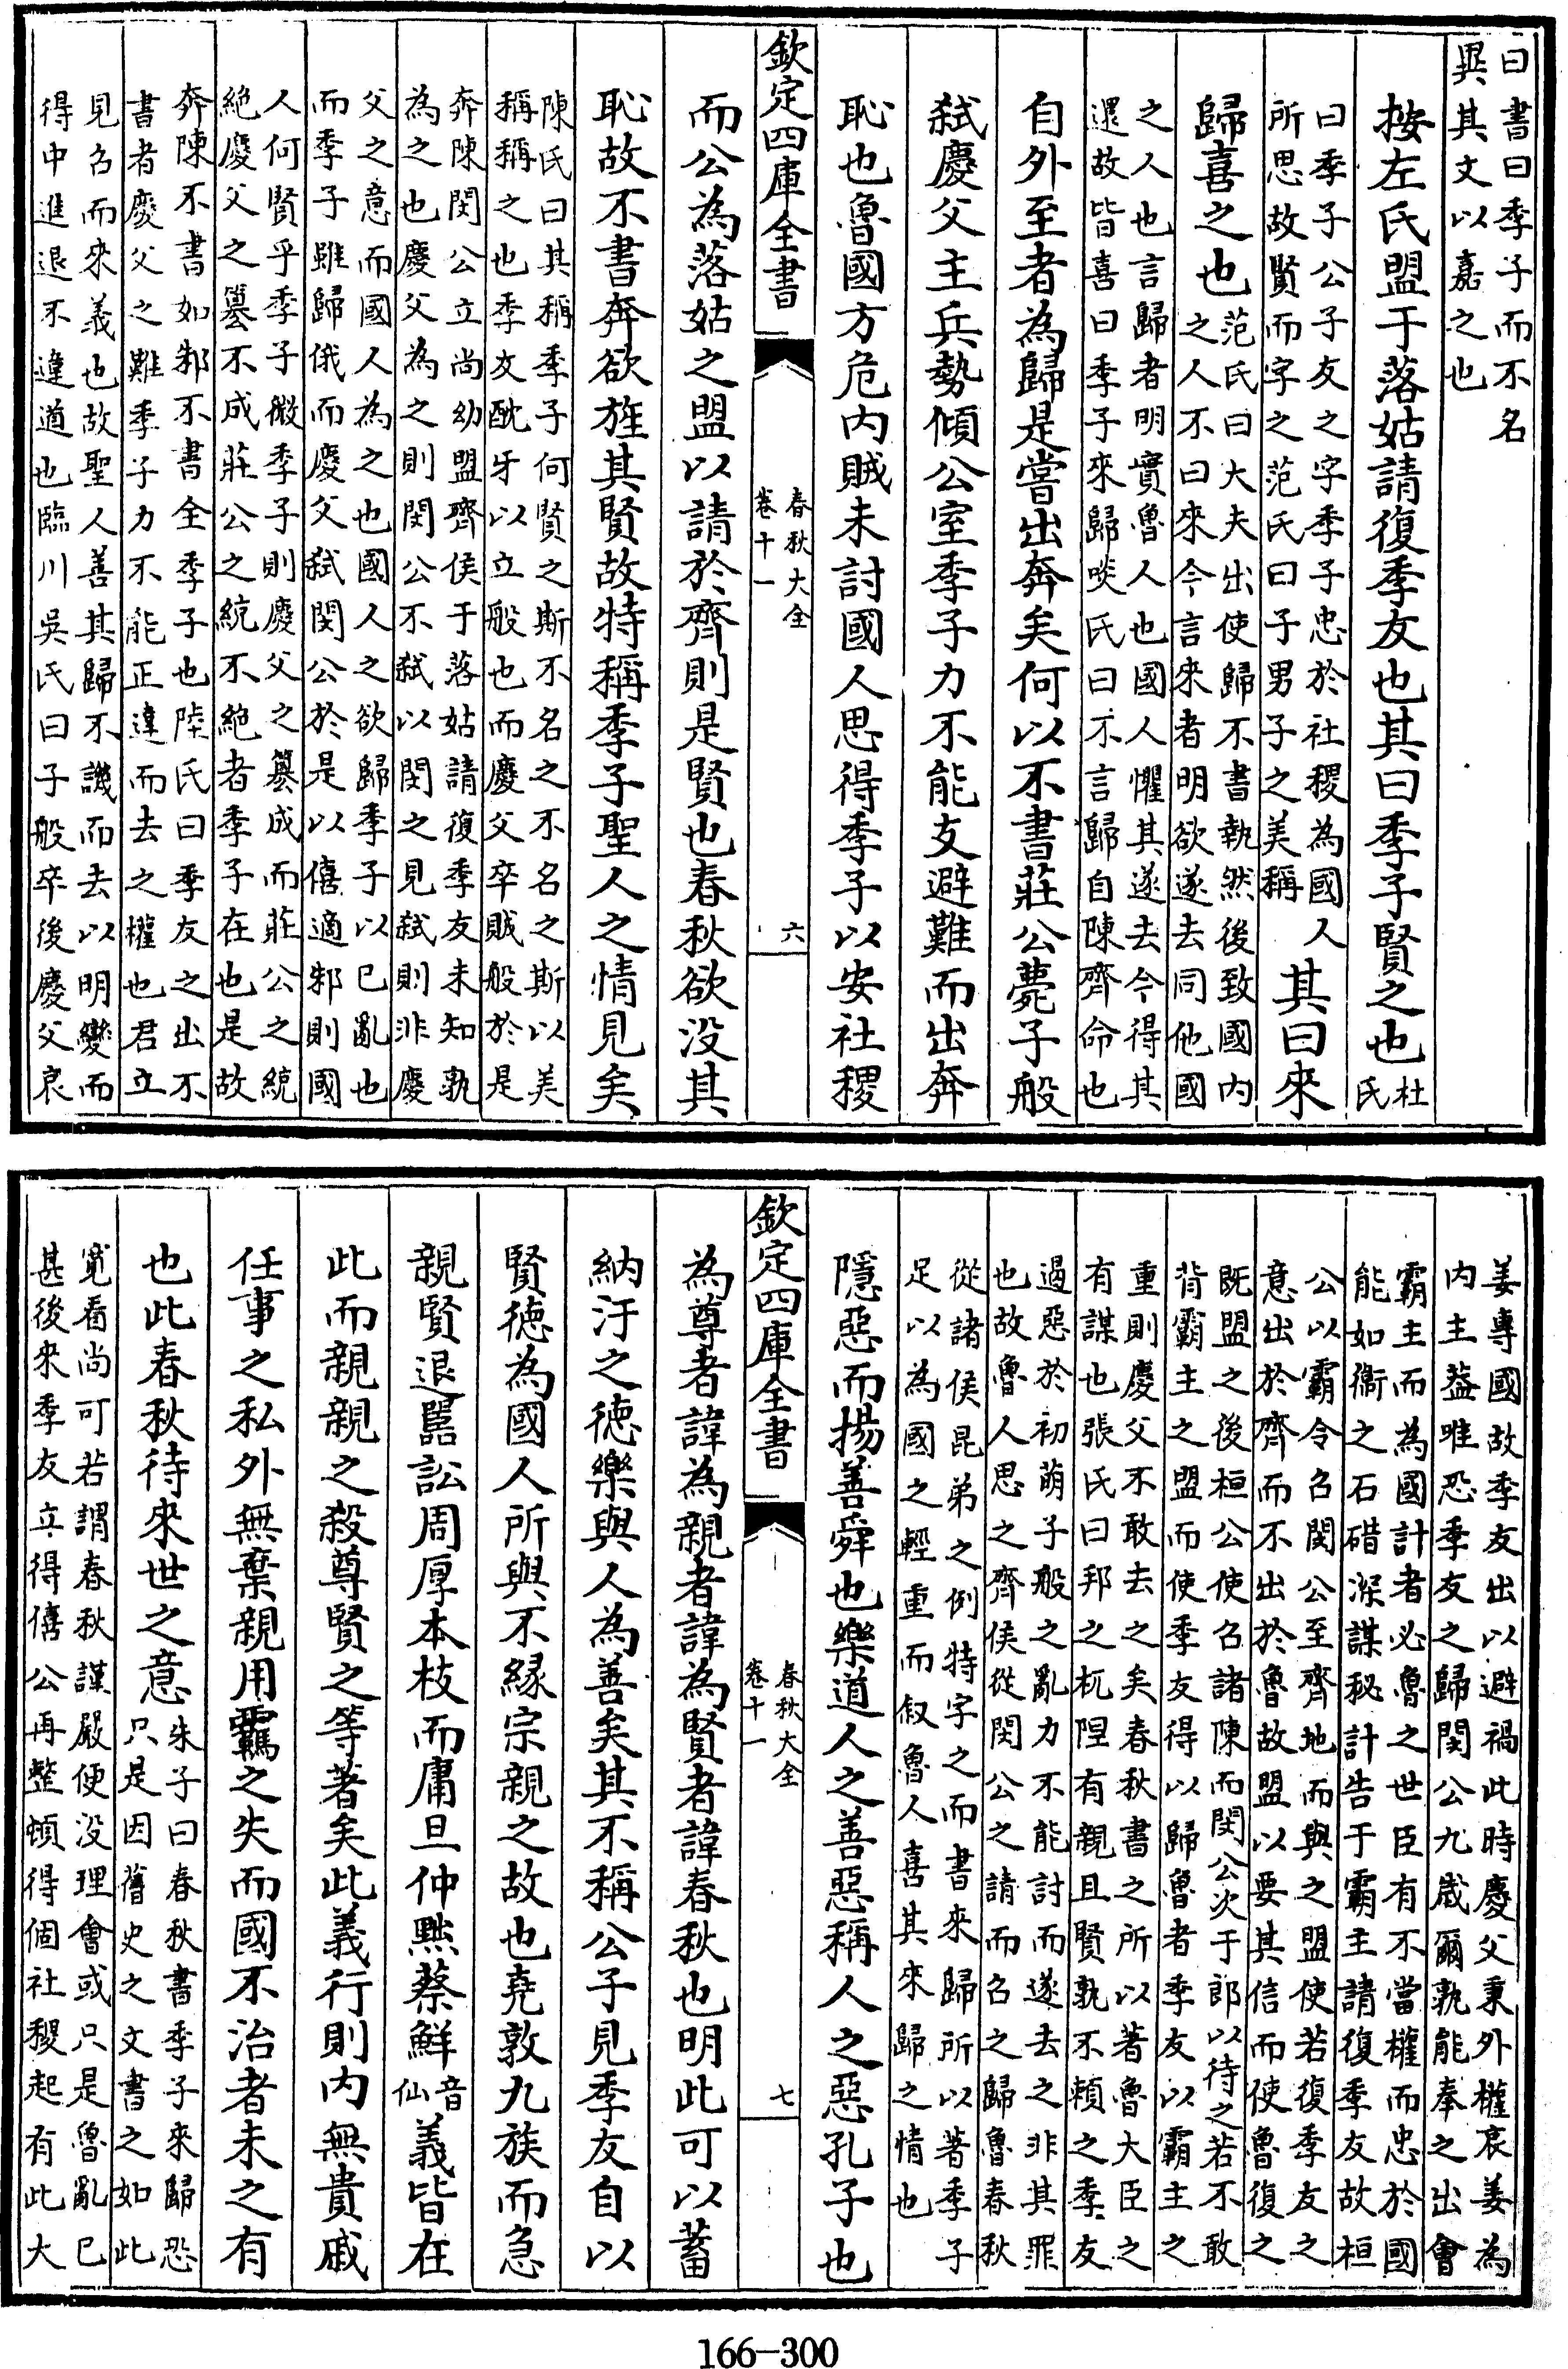 曰書曰季子而不名
異其文以嘉之也
按左氏盟于落姑請復季友也其曰季子賢之也杜
氏
曰季子公子友之字季子忠於社稷為國人
所思故賢而字之范氏曰子男子之美稱
其曰來
歸喜之也
范氏曰大夫出使歸不書執然後致國内
之人不曰來今言來者明欲遂去同他國
之人也言歸者明實魯人也國人懼其遂去今得其
還故皆喜曰季子來歸啖氏曰不言歸自陳齊命也
自外至者為歸是嘗出奔矣何以不書莊公薨子般
弑慶父主兵勢傾公室季子力不能支避難而出奔
恥也魯國方危内賊未討國人思得季子以安社稷
欽定四庫全書
春秋大全
卷十一
六
而公為落姑之盟以請於齊則是賢也春秋欲没其
恥故不書奔欲旌其賢故特稱季子聖人之情見矣
陳氏曰其稱季子何賢之斯不名之不名之斯以美
稱稱之也季友酖牙以立般也而慶父卒賊般於是
奔陳閔公立尚幼盟齊侯于落姑請復季友未知孰
為之也慶父為之則閔公不弑以閔之見弑則非慶
父之意而國人為之也國人之欲歸季子以已亂也
而季子雖歸俄而慶父弑閔公於是以僖適邾則國
人何賢乎季子微季子則慶父之簒成而莊公之統
絶慶父之簒不成莊公之統不絶者季子在也是故
奔陳不書如邾不書全季子也陸氏曰季友之出不
書者慶父之難季子力不能正違而去之權也君立
見召而來義也故聖人善其歸不譏而去以明變而
得中進退不違道也臨川吳氏曰子般卒後慶父哀
姜專國故季友出以避禍此時慶父秉外權哀姜為
内主葢唯恐季友之歸閔公九歲爾孰能奉之出會
霸主而為國計者必魯之世臣有不當權而忠於國
能如衞之石碏深謀秘計告于霸主請復季友故桓
公以霸令召閔公至齊地而與之盟使若復季友之
意出於齊而不出於魯故盟以要其信而使魯復之
既盟之後桓公使召諸陳而閔公次于郎以待之若不敢
背霸主之盟而使季友得以歸魯者季友以霸主之
重則慶父不敢去之矣春秋書之所以著魯大臣之
有謀也張氏曰邦之杌隉有親且賢孰不頼之季友
過惡於初萌子般之亂力不能討而遂去之非其罪
也故魯人思之齊侯從閔公之請而召之歸魯春秋
從諸侯昆弟之例特字之而書來歸所以著季子
足以為國之輕重而叙魯人喜其來歸之情也
隱惡而揚善舜也樂道人之善惡稱人之惡孔子也
欽定四庫全書
春秋大全
卷十一
七
為尊者諱為親者諱為賢者諱春秋也明此可以蓄
納汙之徳樂與人為善矣其不稱公子見季友自以
賢徳為國人所與不緣宗親之故也堯敦九族而急
親賢退嚚訟周厚本枝而庸旦仲黜蔡鮮
音
仙
義皆在
此而親親之殺尊賢之等著矣此義行則内無貴戚
任事之私外無棄親用羈之失而國不治者未之有
也此春秋待來世之意
朱子曰春秋書季子來歸恐
只是因舊史之文書之如此
寛看尚可若謂春秋謹嚴便没理會或只是魯亂已
甚後來季友立得僖公再整頓得個社稷起有此大
166-300